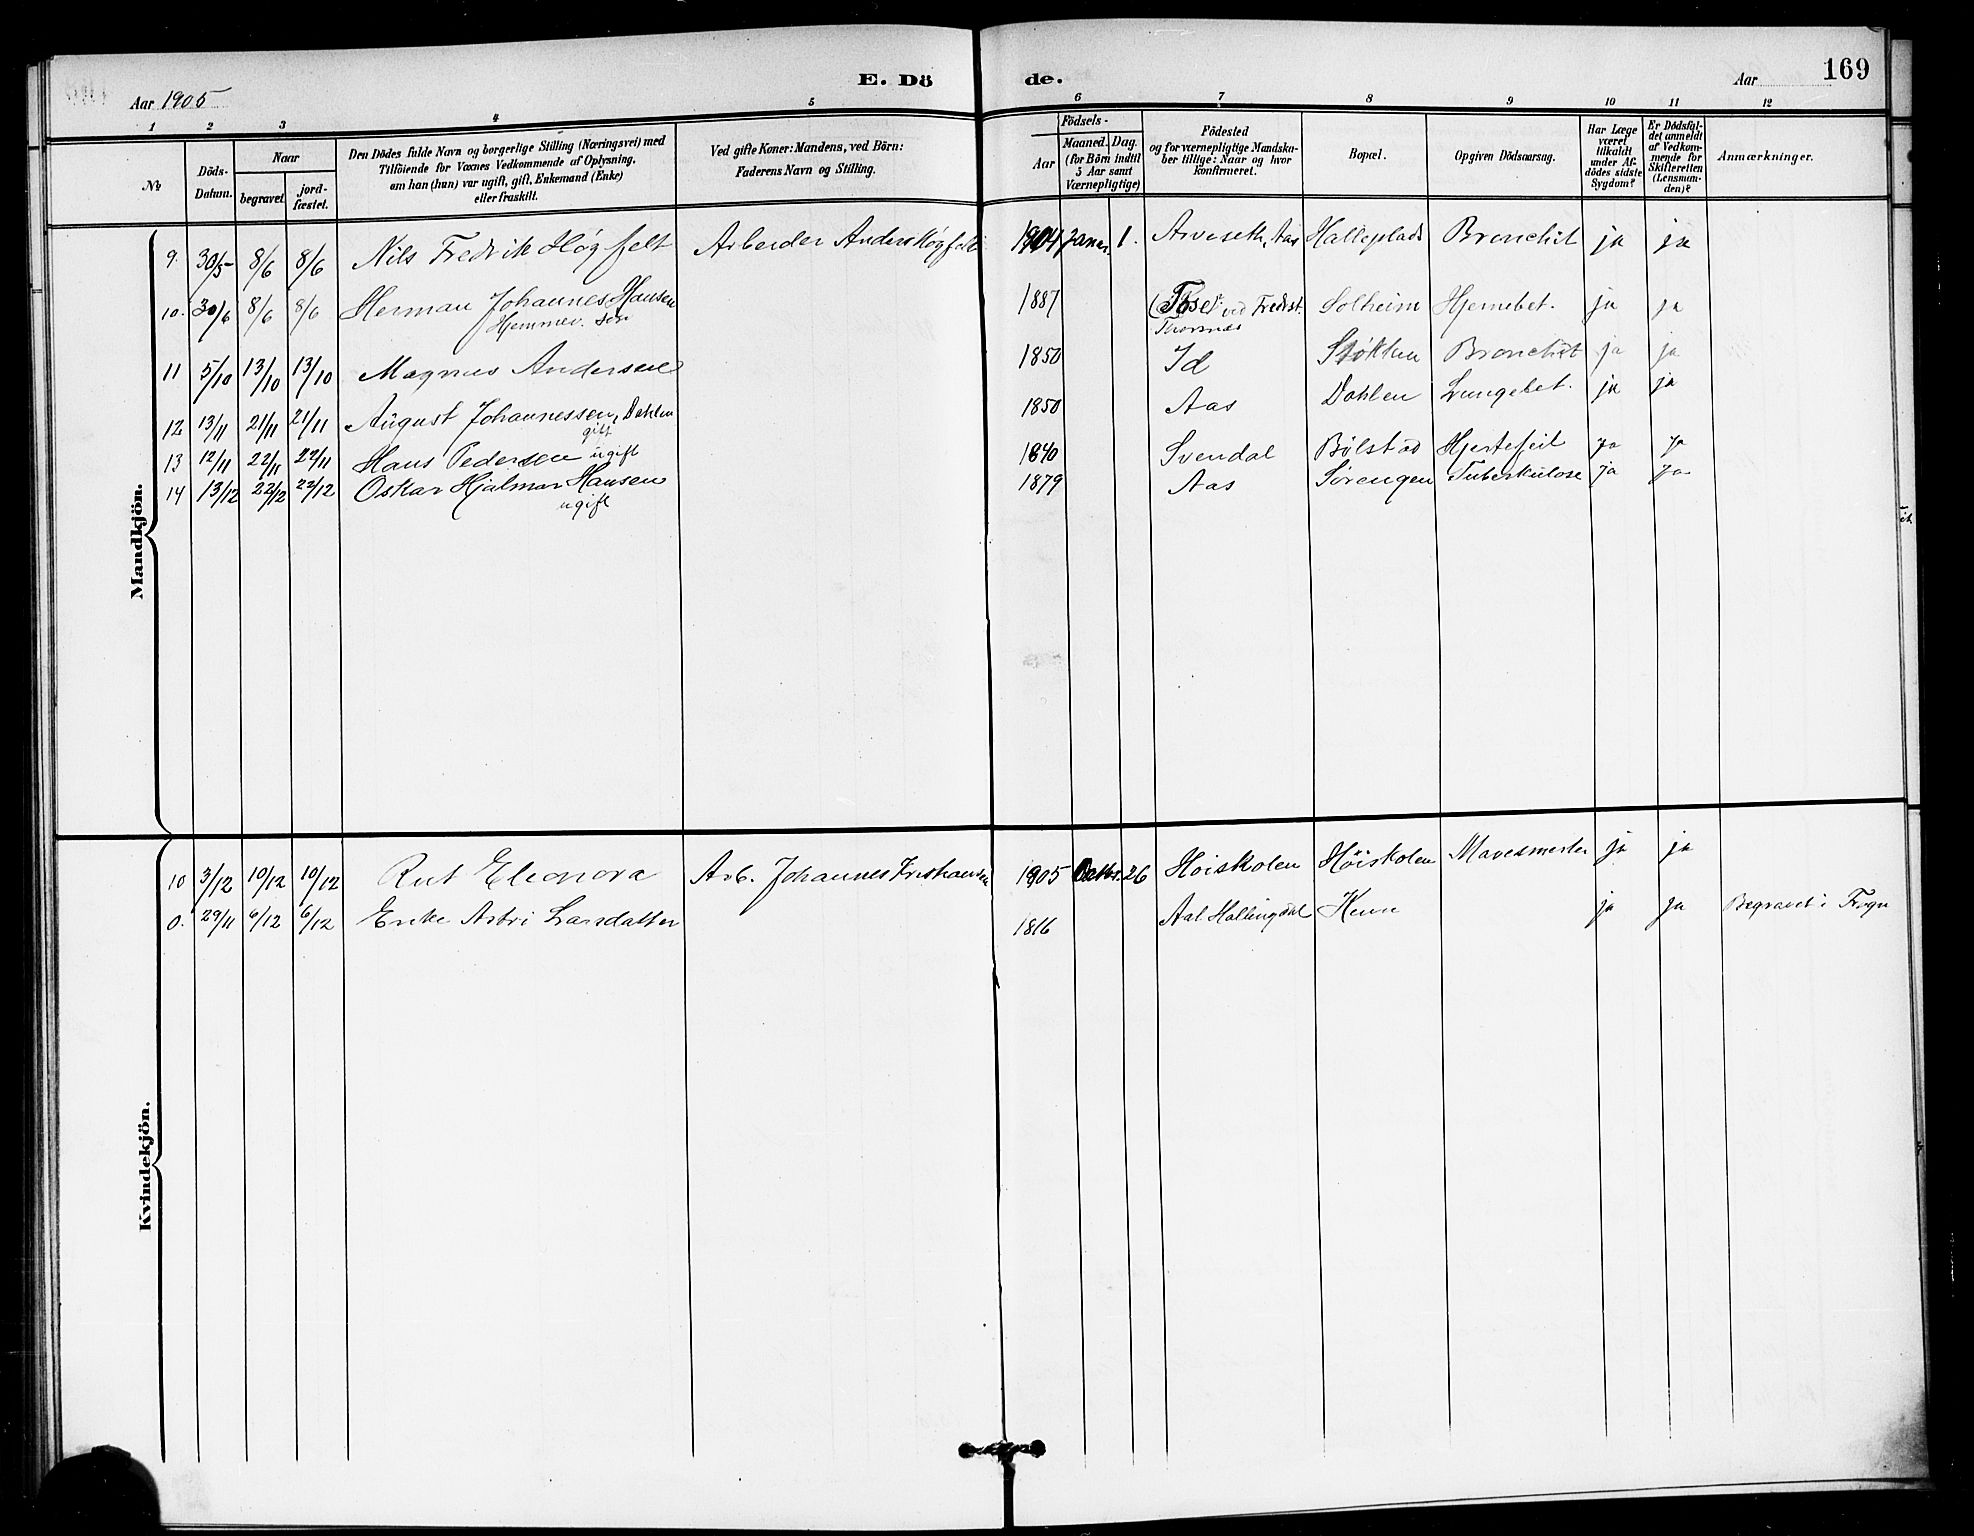 169
E. Dö de.
Aar 1905
Aar
1 2 3 4 5 6 7 8 9 10 11 12
No
Döds-
Datum.
Naar
begravet.
jord-
fæstet.
Den Dödes fulde Navn og borgerlige Stilling (Næringsvei) med
Tilföiende for Voxnes Vedkommende af Oplysning,
om han (hun) var ugift, gift, Enkemand (Enke)
eller fraskilt.
Ved gifte Koner: Mandens, ved Börn:
Faderens Navn og Stilling.
Födsels-
Aar
Maaned. Dag.
(for Börn indtil
5 Aar samt
Værnepligtige)
Födested
og for værnepligtige Mandska-
ber tillige: Naar og hvor
konfirmeret.
Bopæl.
Opgiven Dödsaarsag.
Har Læge
været
tilkaldt
under Af-
dödes sidste
Sygdom?
Er Dödsfal-
det anmeldt
af Vedkom-
mende for
Skifteretten
(Lensman-
den)?
Anmærkninger.
Mandkjön.
9. 30/5 8/6 8/6 Nils Fredrik Høgfelt Arbeider Anders Høgfelt 1904 Januar 1. Aas Halleplads Bronchit ja ja
10. 30/6 8/6 8/6 Herman Johannes Hansen 1887 ved Fredrst. Solheim Hjernebet. ja ja
Hjemmev. søn Thorsnæs
11 5/10 13/10 13/10 Magnus Andersen 1850 Id Støkken Bronchit ja ja
12 13/11 21/11 21/11 August Johannessen, Dahlen 1850 Aas Dahlen Lungebet. ja ja
gift
13 12/11 22/11 22/11 Hans Pedersen ugift 1840 Svendal Bølstad Hjertefeil ja ja
14 13/12 22/12 22/12 Oskar Hjalmar Hansen 1879 Aas Sørengen Tuberkulose ja ja
ugift
Kvindekjön.
10 3/12 10/12 10/12 Rut Eleonora Arb. Johannes Kristiansen 1905 Octbr. 26 Høiskolen Høiskolen Mavesmerter ja ja
0. 29/11 6/12 6/12 Enke Astri Larsdatter 1816 Aal Hallingdal ja ja Begravet i Frogn